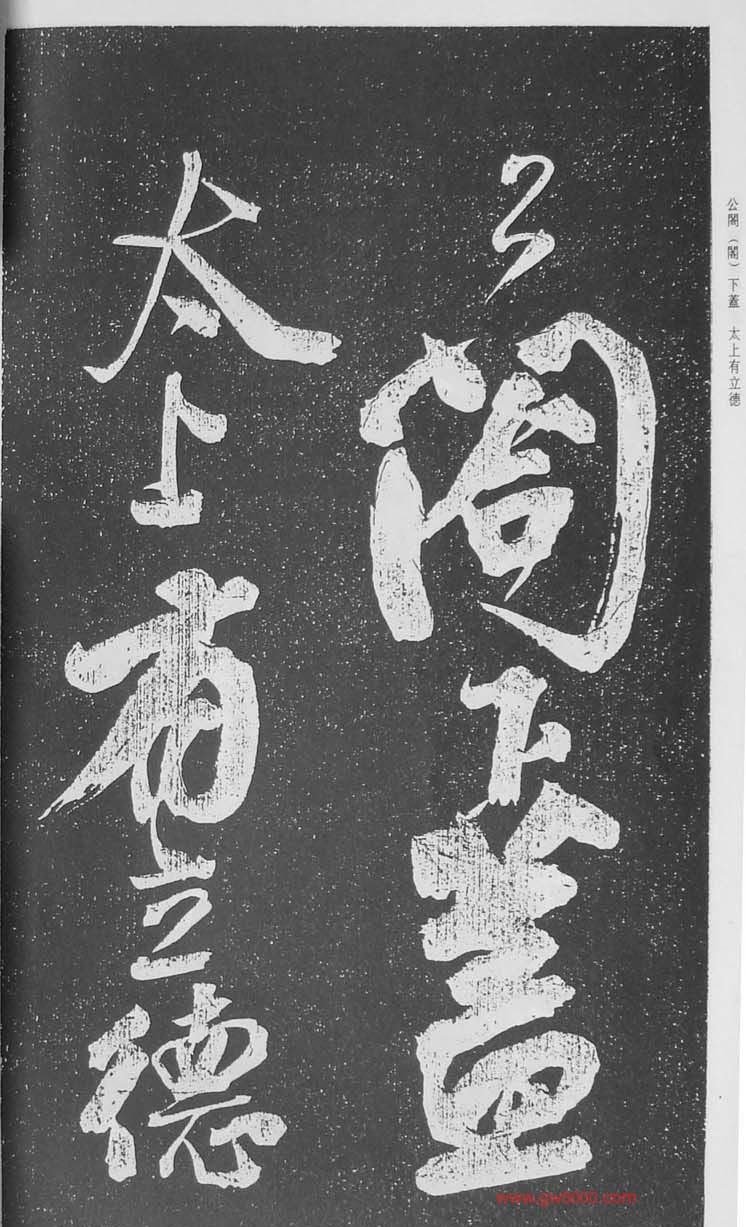 公閤下蓋
太上有立德
公閤（閣）下蓋　太上有立德
www.gw5000.com